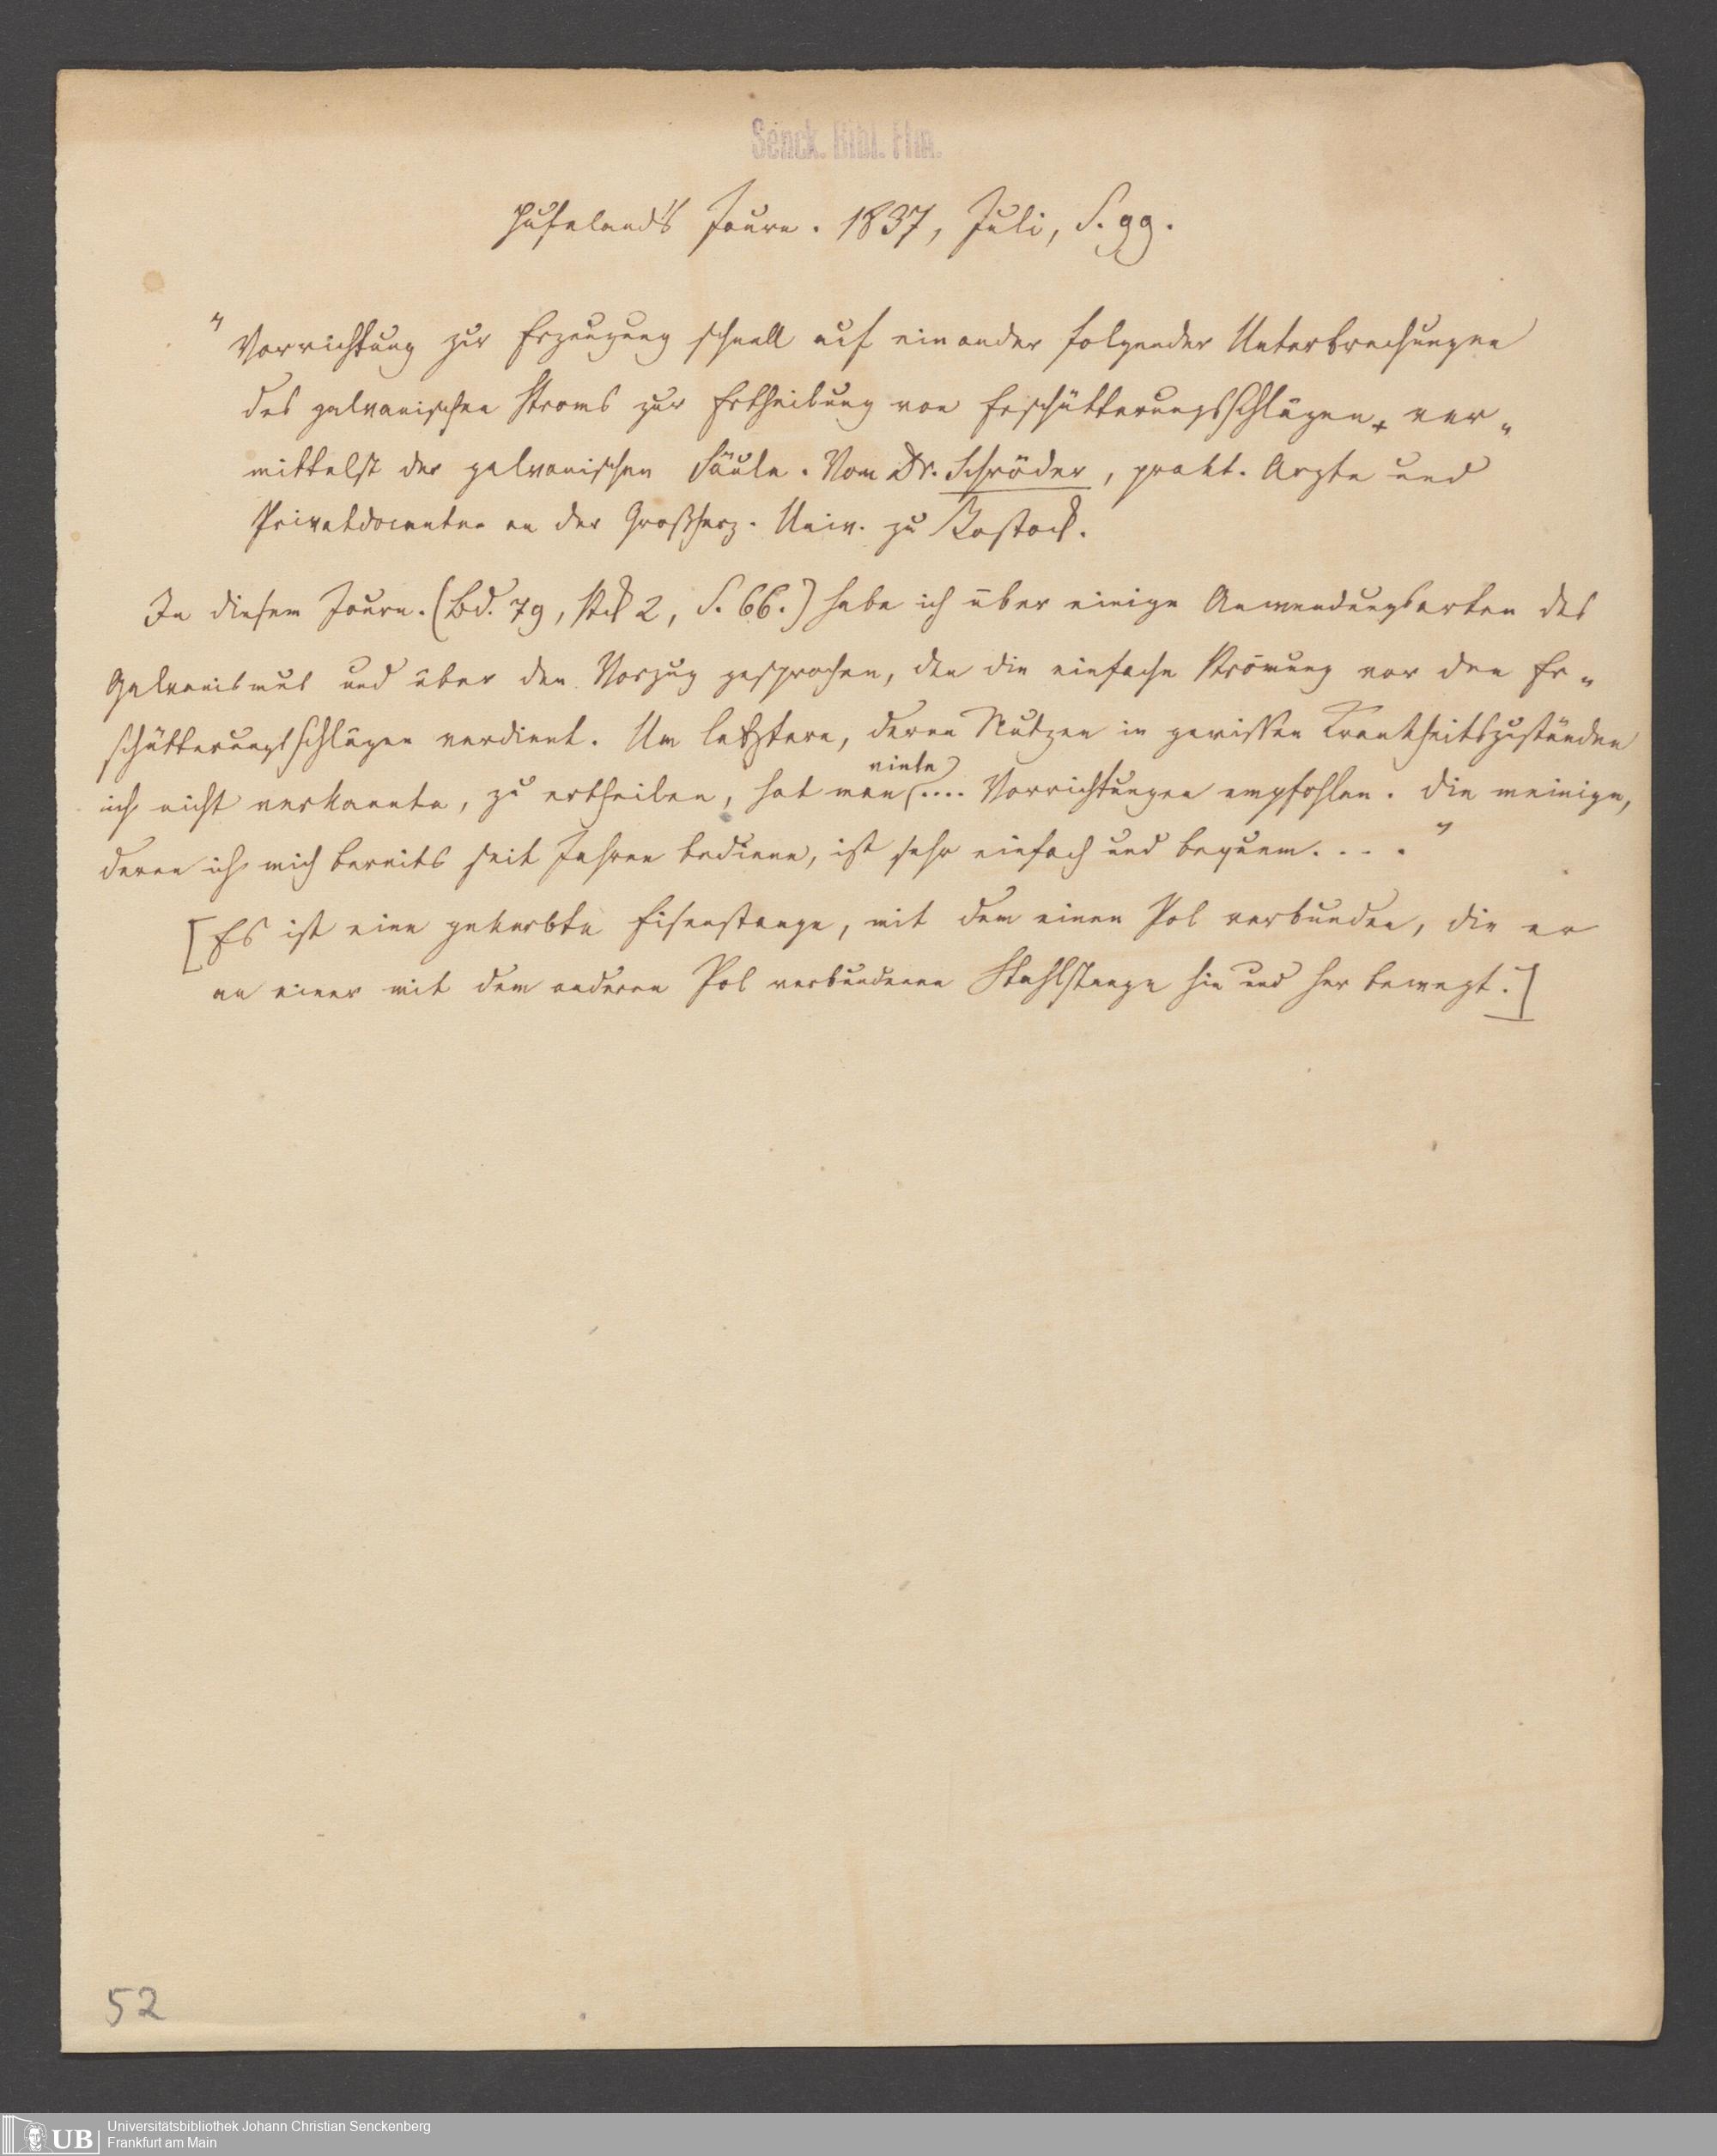 Senck. Bibl. Ffm.
Hufeland's Journ. 1837, Juli, S. 99.
"Vorrichtung zur Erzeugung schnell auf einander folgender Unterbrechungen
des galvanischen Stroms zur Ertheilung von Erschütterungsschlägen, ver„
mittelst der galvanischen Säule. Vom Dr. Schröder, prakt. Arzte und
Privatdocenten an der Großherz. Univ. zu Rostock.
In diesem Journ. (Bd. 79, Stck 2, S. 66.) habe ich über einige Anwendungsarten des
Galvanismus und über den Vorzug gesprochen, den die einfache Strömung vor den Er„
schütterungsschlägen verdient. Um letztere, deren Nutzen in gewissen Krankheitszuständen
ich nicht verkannte, zu ertheilen, hat man viele .... Vorrichtungen empfohlen. Die meinige,
deren ich mich bereits seit Jahren bediene, ist sehr einfach und bequem. . . ."
[Es ist eine gekerbte Eisenstange, mit dem einen Pol verbunden, die er
an einer mit dem anderen Pol verbundenen Stahlstange hin und her bewegt.]
52
UB Universitätsbibliothek Johann Christian Senckenberg
Frankfurt am Main